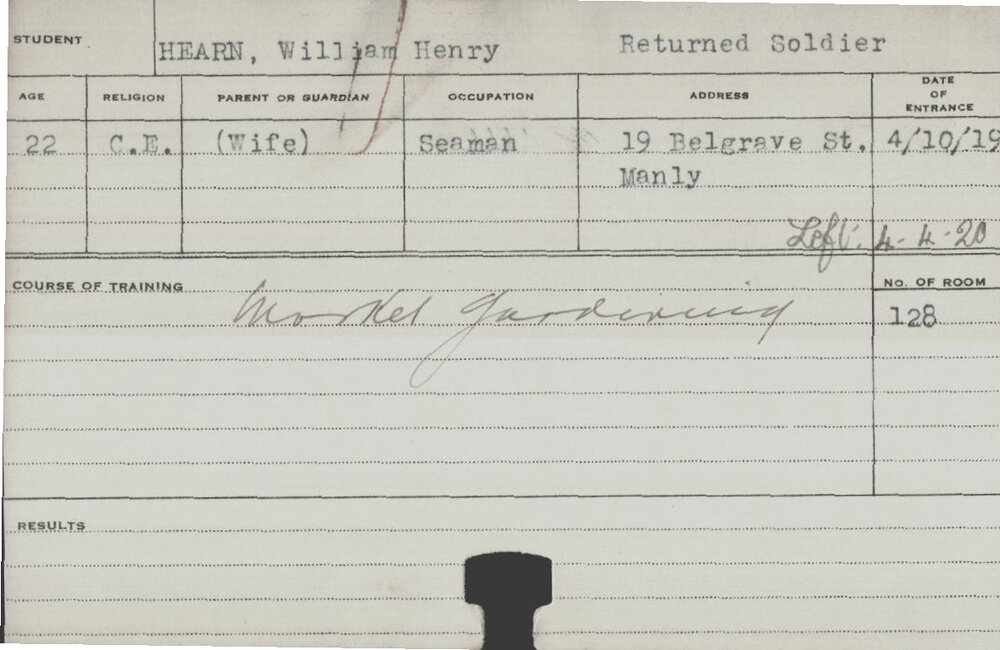 STUDENT HEARN, William Henry Returned Soldier
AGE RELIGION PARENT OR GUARDIAN OCCUPATION ADDRESS DATE OF ENTRANCE
22 C.E. (Wife) Seaman 19 Belgrave St. 4/10/19
Manly
Left: 4-4-20
COURSE OF TRAINING Market Gardening NO. OF ROOM
128
RESULTS